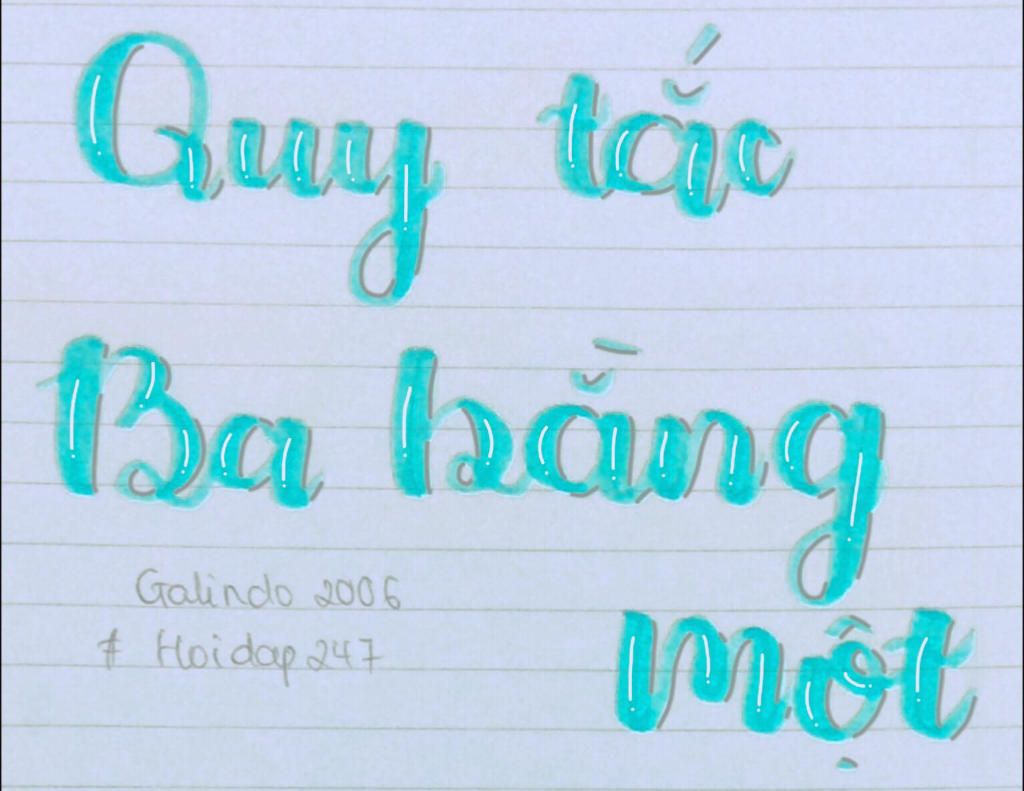 Quy tắc
Ba bằng
một
Galindo 2006
# Hoidap247